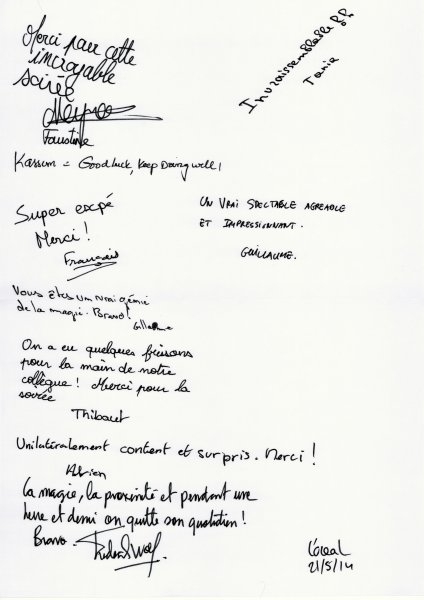 Merci pour cette
incroyable
soirée
Faustine
Invraissemblable !!
Tania
Kassum = Good luck, keep Doing well !
Super expé
Merci !
François
UN VRAI SPECTABLE AGREABLE
ET IMPRESSIONNANT.
GUILLAUME.
Vous êtes un vrai génie
de la magie. Bravo!
Guillaume
On a eu quelques frissons
pour la main de notre
collègue ! Merci pour la
soirée
Thibault
Unilatéralement content et surpris. Merci !
Adrien
La magie, la proximité et pendant une
heure et demi on quitte son quotidien !
Bravo.
L'oreal
21/5/14